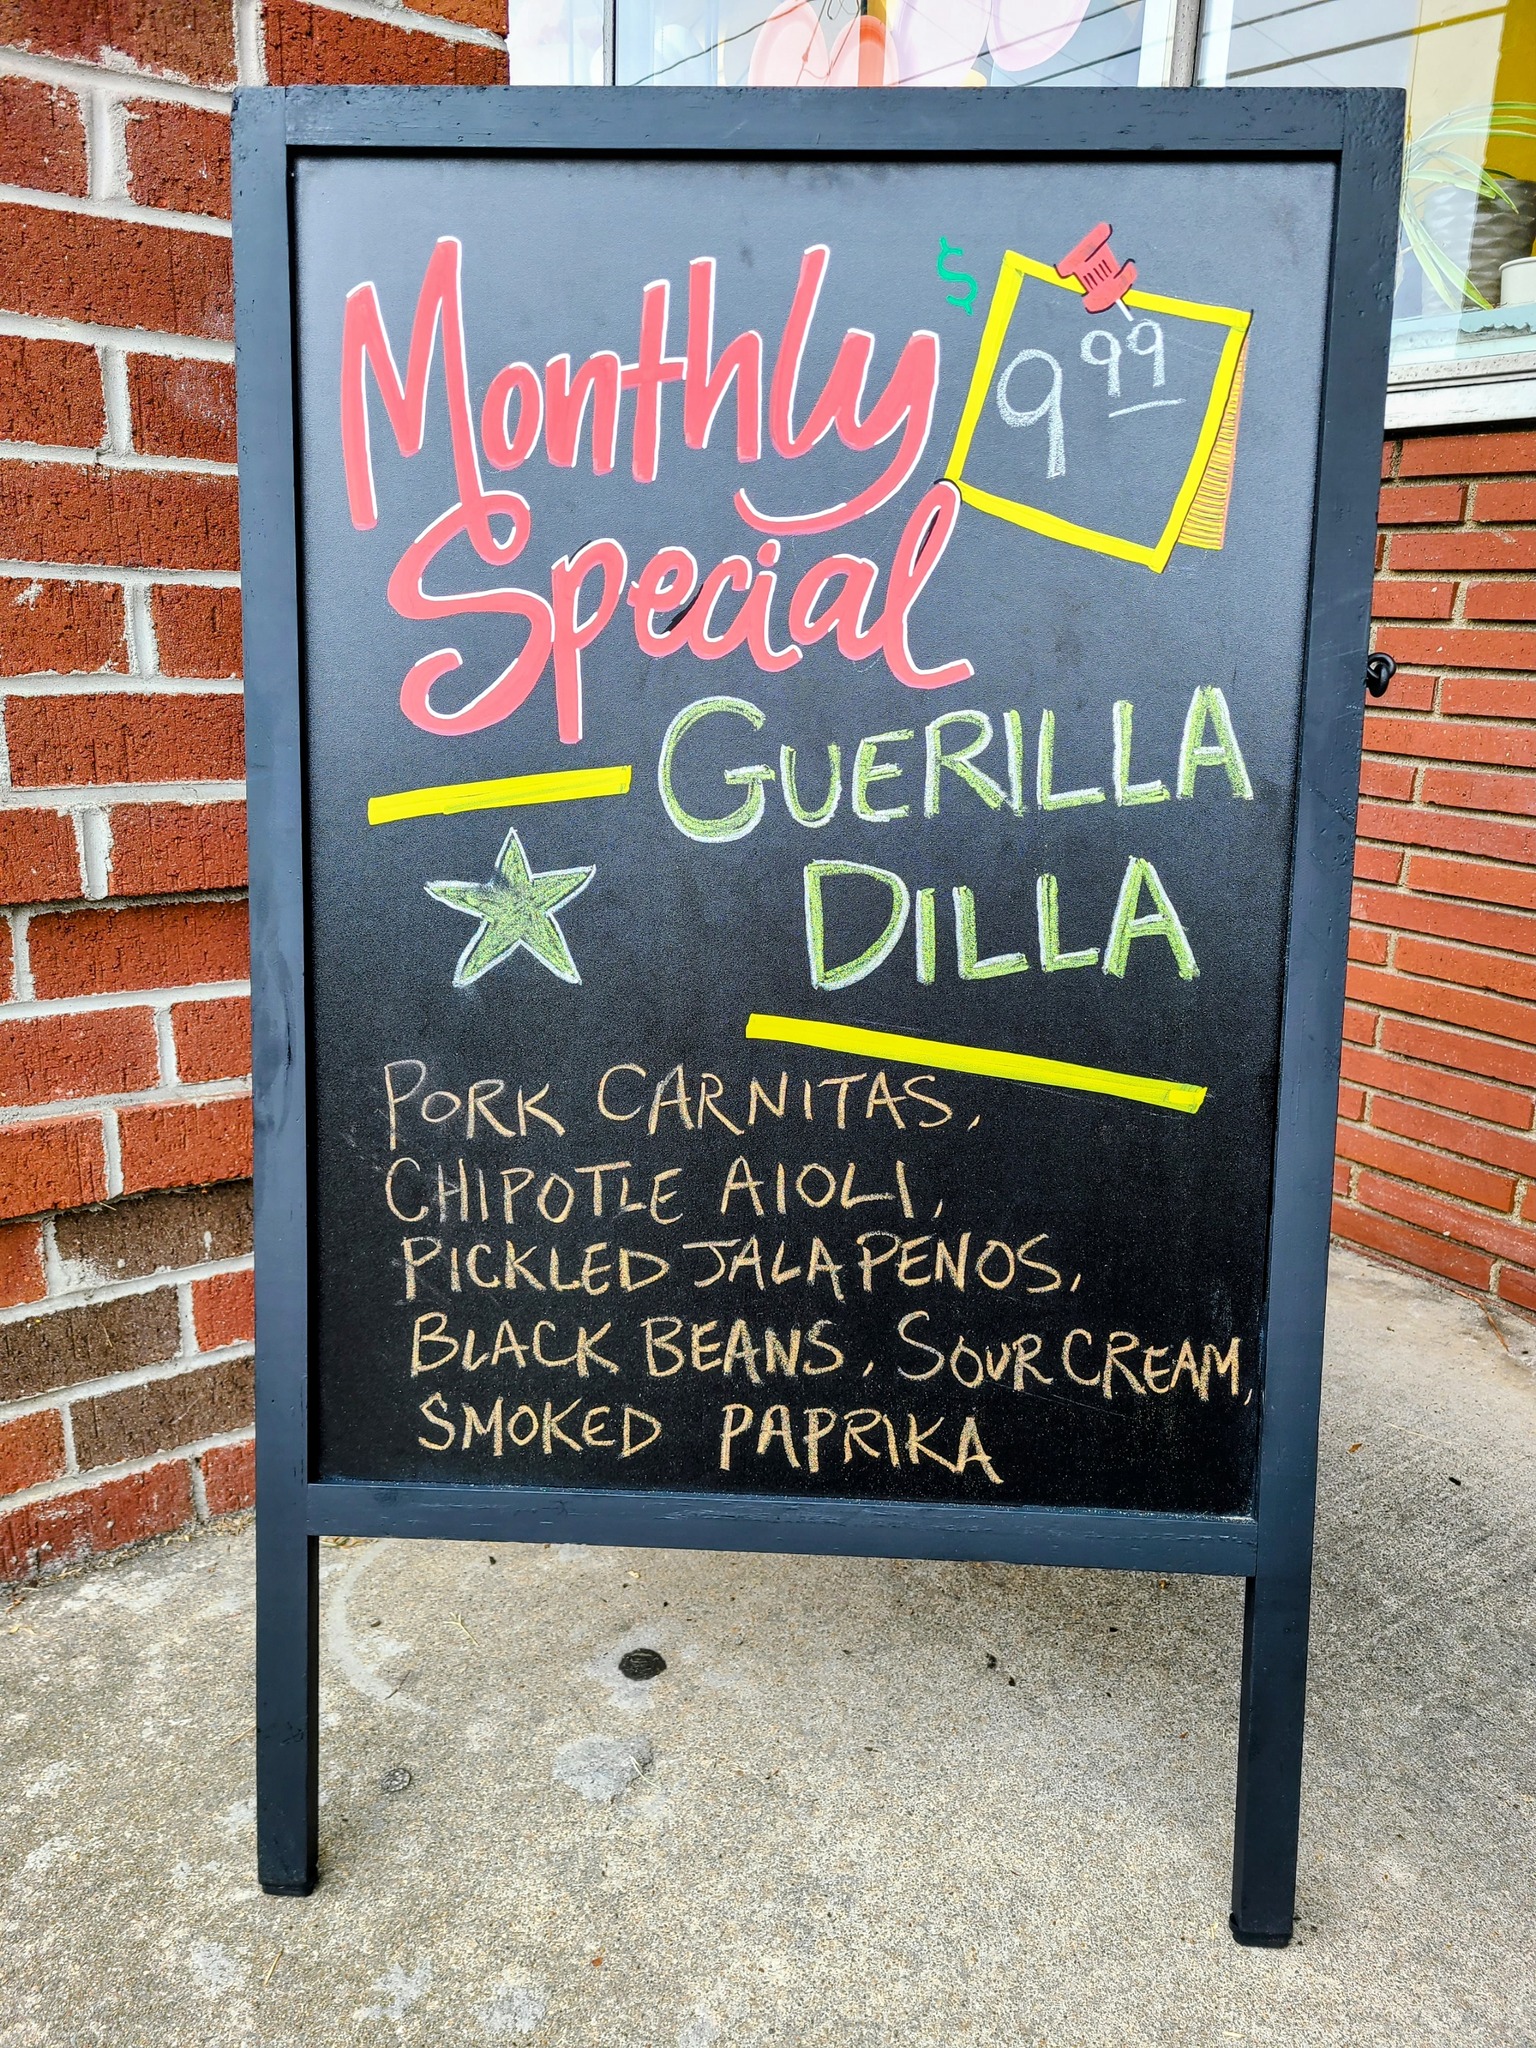 Monthly
Special
$ 9 99
GUERILLA
DILLA
PORK CARNITAS,
CHIPOTLE AIOLI,
PICKLED JALAPENOS,
BLACK BEANS, SOUR CREAM,
SMOKED PAPRIKA